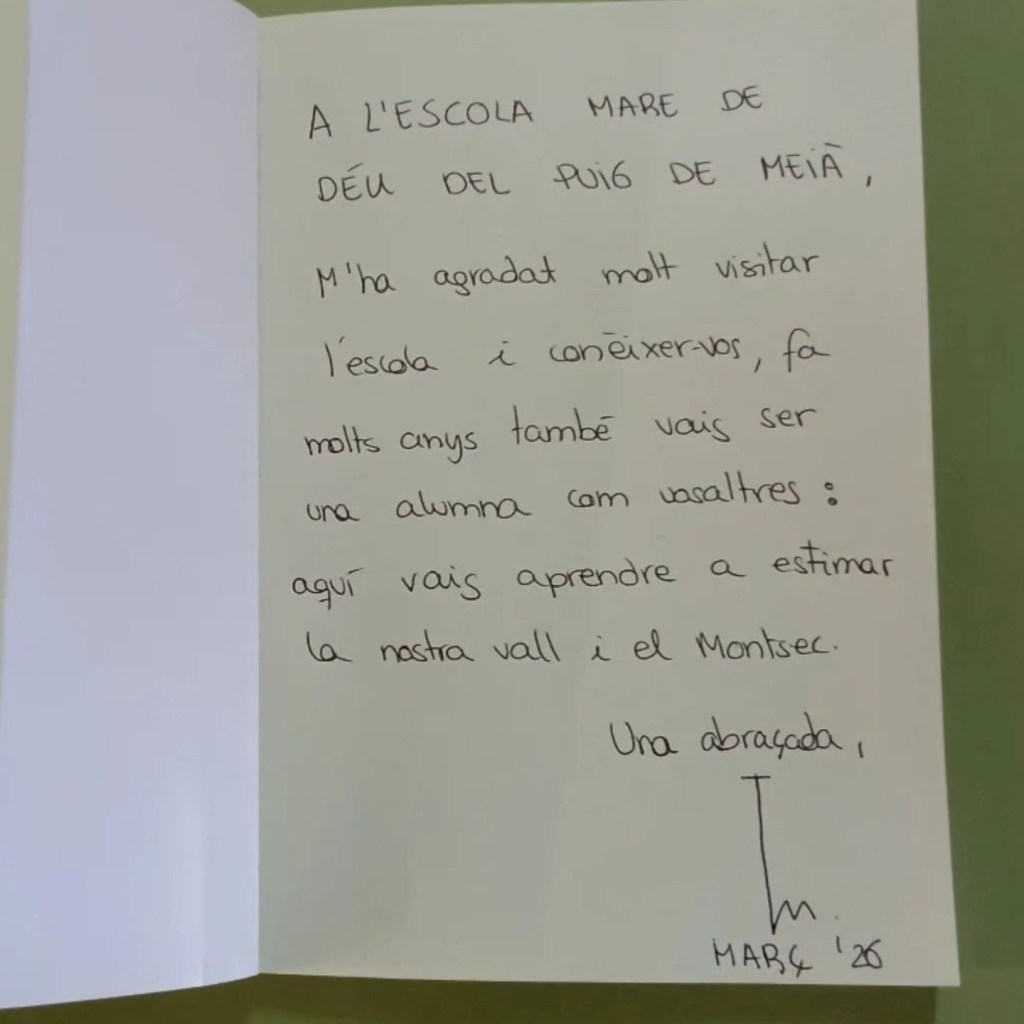 A L'ESCOLA MARE DE
DÉU DEL PUIG DE MEIÀ,
M'ha agradat molt visitar
l'escola i conèixer-vos, fa
molts anys també vaig ser
una alumna com vosaltres:
aquí vaig aprendre a estimar
la nostra vall i el Montsec.
Una abraçada,
MARÇ '26